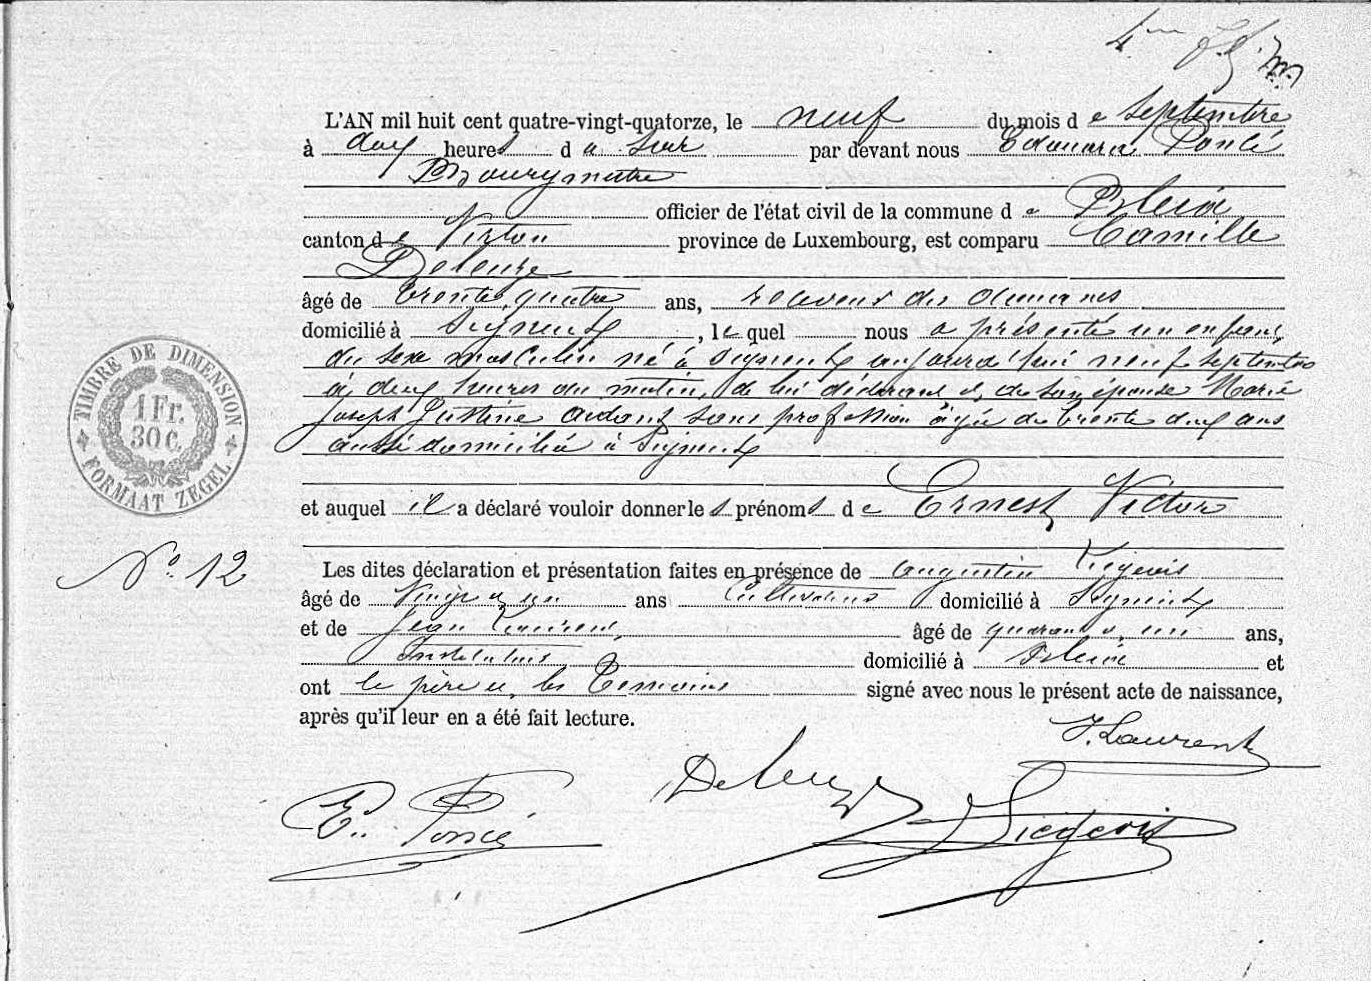 4me
L'AN mil huit cent quatre-vingt-quatorze, le neuf du mois de septembre
à deux heures du soir par devant nous Edouard Poncé
Bourgmestre
officier de l'état civil de la commune de Bleid
canton de Virton province de Luxembourg, est comparu Camille
Deleuze
âgé de trente quatre ans, receveur des douanes
domicilié à Signeulx, lequel nous a présenté un enfant
du sexe masculin né à Signeulx aujourd'hui neuf septembre
à deux heures du matin, de lui déclarant et de son épouse Marie
Joseph Justine sans profession âgée de trente deux ans
aussi domiciliée à Signeulx
et auquel il a déclaré vouloir donner les prénoms de Ernest Victor
No. 12
Les dites déclaration et présentation faites en présence de Augustin Liegeois
âgé de vingt et un ans Cultivateur domicilié à Signeulx
et de Jean Laurent, âgé de quarante et un ans,
Instituteur domicilié à Bleid et
ont le père et les témoins signé avec nous le présent acte de naissance,
après qu'il leur en a été fait lecture.
J. Laurent
E. Poncé Deleuze Liegeois
TIMBRE DE DIMENSION
1 Fr.
30 C.
FORMAAT ZEGEL